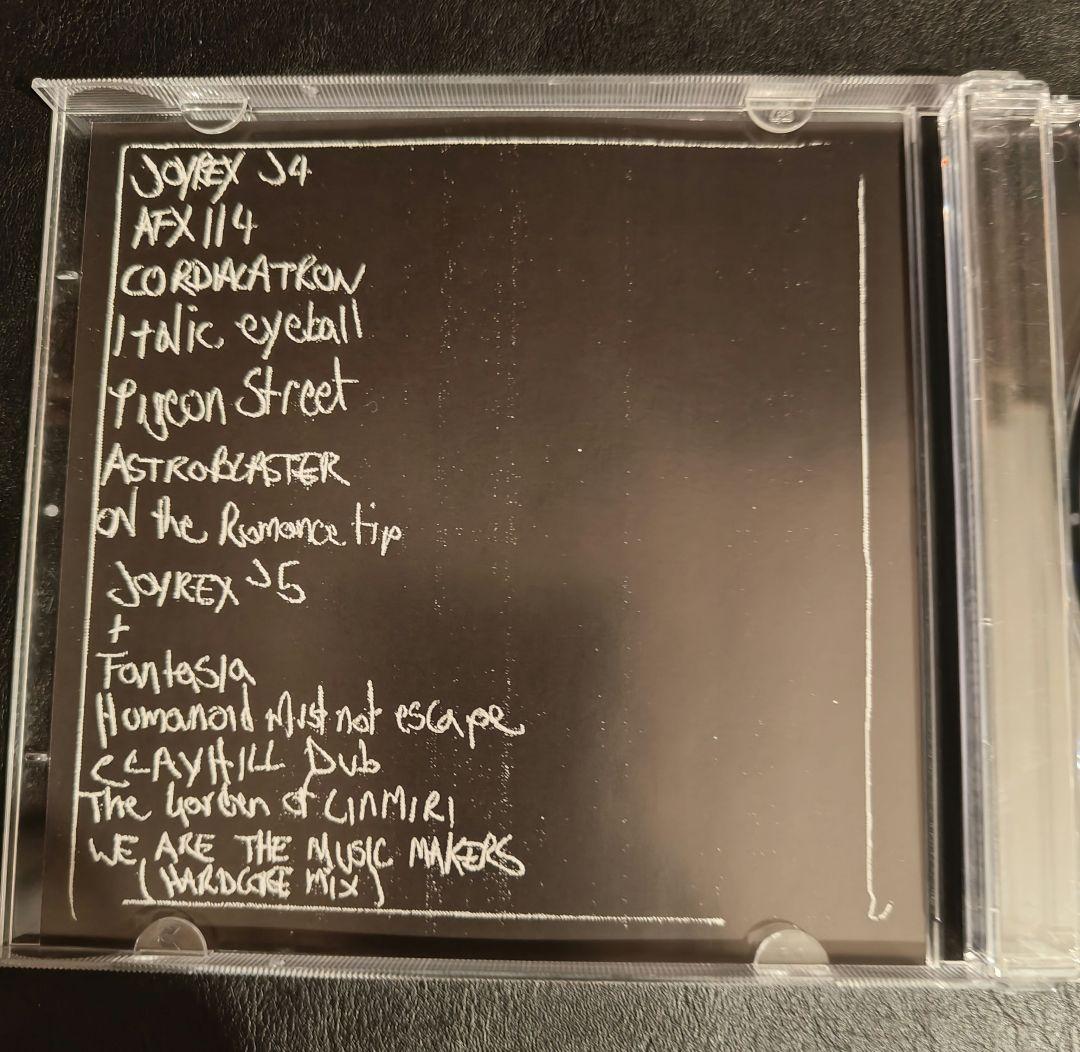 JOYREX J4
AFX 114
CORDIALATRON
Italic eyeball
Pigeon Street
ASTROBLASTER
ON the Romance tip
JOYREX J5
+
Fantasia
Humanoid Must not escape
CLAYHILL Dub
The Garden of LINMIRI
WE ARE THE MUSIC MAKERS
(HARDCORE MIX)